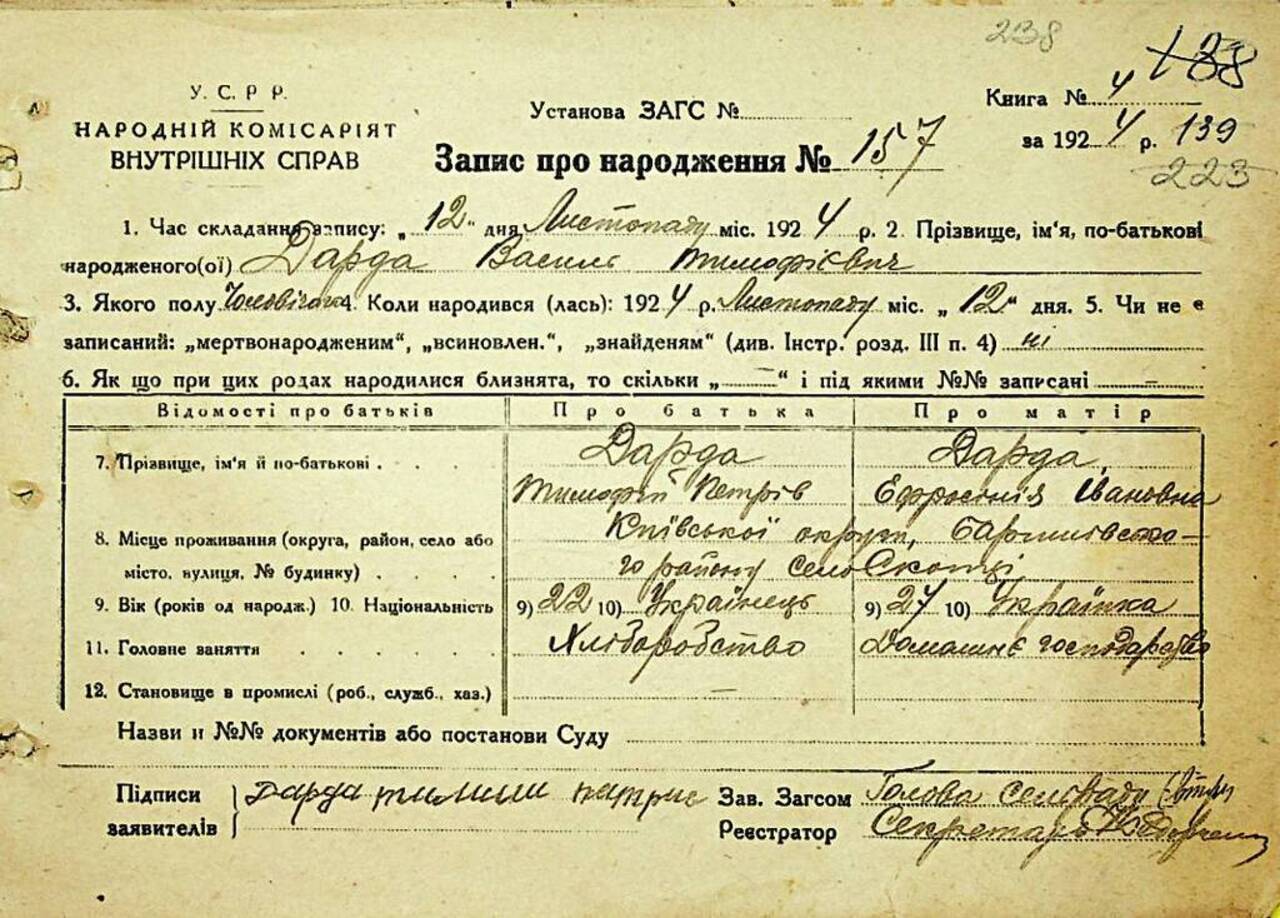 238
138
У. С. Р Р.
НАРОДНІЙ КОМІСАРІЯТ
ВНУТРІШНІХ СПРАВ
Установа ЗАГС №
Книга № 4
за 1924 р. 139
223
Запис про народження № 157
1. Час складання запису: „12" дня Листопаду міс. 1924 р. 2. Прізвище, ім'я, по-батькові
народженого(ої) Дарда Василь Тимофієвич
3. Якого полу Чоловічого 4. Коли народився (лась): 1924 р. Листопаду міс. „12" дня. 5. Чи не є
записаний: „мертвонародженим", „всиновлен.", „знайденям" (див. Інстр. розд. III п. 4) ні
6. Як що при цих родах народилися близнята, то скільки „—" і під якими №№ записані —
Відомості про батьків Про батька Про матір
7. Прізвище, ім'я й по-батькові . . . . Дарда Дарда,
Тимофій Петрів Ефросінія Івановна
8. Місце проживання (округа, район, село або Київської округи, Баришівсько-
місто, вулиця, № будинку) . . . . го району село Скопці
9. Вік (років од народж.) 10. Національність 9) 22 10) Українець 9) 24 10) Українка
11. Головне заняття . . . . . Хліборобство Домашнє господарство
12. Становище в промислі (роб., служб., хаз.) —
Назви и №№ документів або постанови Суду
Підписи Дарда Зав. Загсом Голова Сельради
заявителів Реєстратор Секретарь